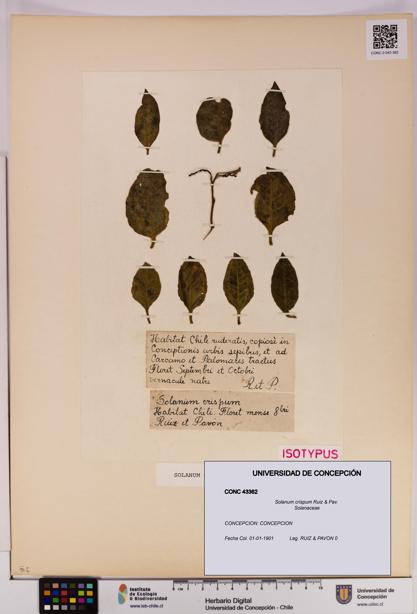 Habitat Chile ruderatis, copiosè in
Conceptionis urbis sepibus, et ad
Carcamo et Palomares tractus
Floret Septembri et Octobri
vernacule natre R. et P.
Solanum crispum
Habitat Chili. Floret mense 8bri
Ruiz et Pavon
ISOTYPUS
SOLANUM
UNIVERSIDAD DE CONCEPCIÓN
CONC 43362
Solanum crispum Ruiz & Pav.
Solanaceae
CONCEPCION: CONCEPCION
Fecha Col. 01-01-1901 Leg. RUIZ & PAVON 0
Instituto
de Ecología
& Biodiversidad
www.ieb-chile.cl
Herbario Digital
Universidad de Concepción - Chile
Universidad de
Concepción
www.udec.cl